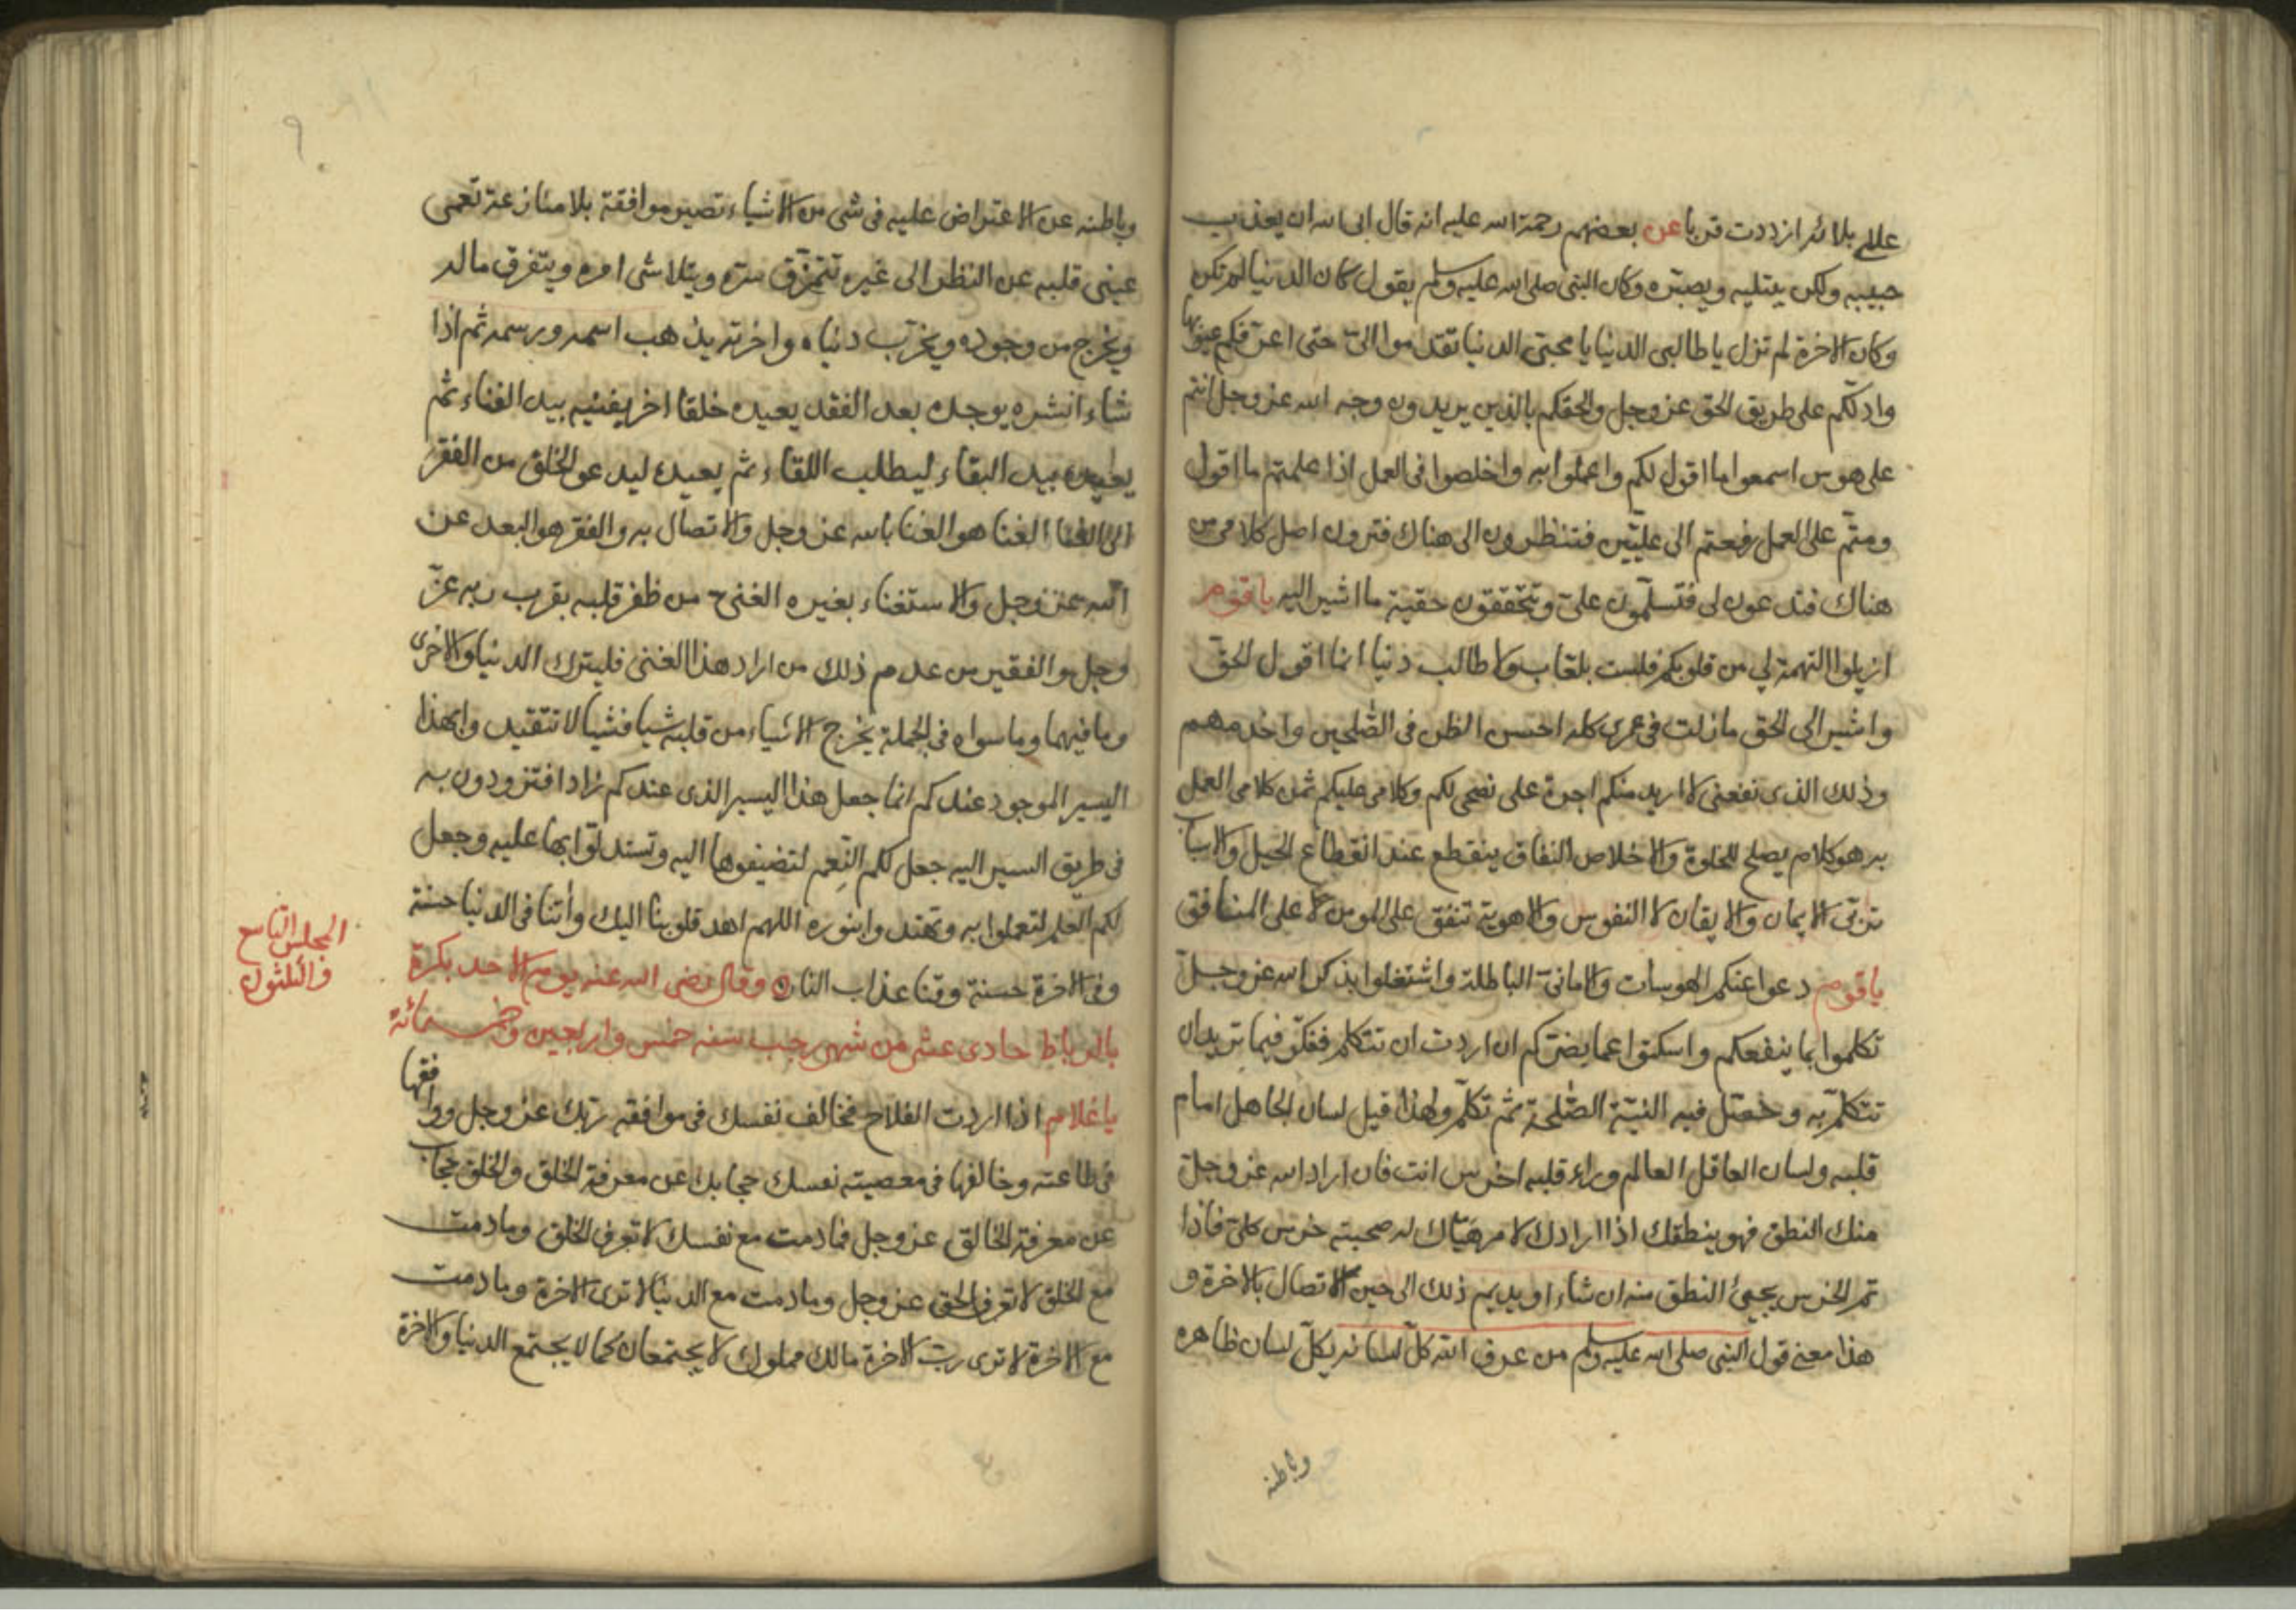 على بلائه ازددت قربا عن بعضهم رحمة الله عليه انه قال ابى الله ان يعذب
حبيبه ولكن يبتليه ويصبّره وكان النبى صلى الله عليه وسلم يقول كان الدنيا لم تكن
وكان الاخرة لم تزل يا طالبى الدنيا يا محبى الدنيا تقدموا الىّ حتى اعرّفكم عيوبها
وادلّكم على طريق الحق عز وجل والحقكم بالذين يريدون وجه الله عز وجل انتم
على هوس اسمعوا ما اقول لكم واعملوا به واخلصوا فى العمل اذا علمتم ما اقول
ومتّم على العمل رفعتم الى علّيّين فتنظرون الى هناك فترون اصل كلامى من
هناك فتدعون لى فتسلّمون علىّ وتتحققون حقية ما اشير اليه يا قوم
ازيلوا التهمة لي من قلوبكم فلست بلعّاب ولا طالب دنيا انما اقول الحقّ
واشير الى الحق مازلت فى عمرى كله احسن الظن فى الصّلحين واخدمهم
وذلك الذى نفعنى لا اريد منكم اجرة على نصحى لكم وكلامى عليكم ثمن كلامى العمل
به هو كلام يصلح للخلوة والاخلاص النفاق ينقطع عند انقطاع الحيل والاسباب
تربّى الايمان والايقان لا النفوس والاهوية تنفق على المومن لا على المنافق
يا قوم دعوا عنكم الهوسات والامانىّ الباطلة واشتغلوا بذكر الله عز وجلّ
تكلموا بما ينفعكم واسكتوا عما يضرّكم ان اردت ان تتكلم ففكّر فيما تريد ان
تتكلّم به وحصّل فيه النيّة الصّلحة ثم تكلّم ولهذا قيل لسان الجاهل امام
قلبه ولسان العاقل العالم وراء قلبه اخرس انت فان اراد الله عز وجلّ
منك النطق فهو ينطقك اذا ارادك لامر هيّاك له صحبته خرس كلىّ فاذا
تم الخرس يجيئ النطق منه ان شاء او يديم ذلك الى حين الاتصال بالاخرة و
هذا معنى قول النبى صلى الله عليه وسلم من عرف الله كلّ لسانه يكلّ لسان ظاهره
وباطنه
وباطنه عن الاعتراض عليه فى شى من الاشياء تصير موافقة بلا منازعة تعمى
عينى قلبه عن النظر الى غيره تتمزّق سرّه ويتلاشى امره ويتفرق ماله
ويخرج من وجوده ويخرب دنياه واخرته يذهب اسمه ورسمه ثم اذا
شاء انشره يوجده بعد الفقد يعيده خلقا اخر يفنيه بيد الفناء ثم
يعيده بيد البقاء ليطلب اللقاء ثم يعيده ليدعو الخلق من الفقر
الى الغنا الغنا هو الغنا بالله عز وجل والاتصال به والفقر هو البعد عن
الله عز وجل والاستغناء بغيره الغنى من ظفر قلبه بقرب ربه عزّ
وجل والفقير من عدم ذلك من اراد هذا الغنى فليترك الدنيا والاخرى
وما فيهما وما سواه فى الجملة يخرج الاشياء من قلبه شيا فشيا لا تتقيدوا بهذا
اليسير الموجود عندكم انما جعل هذا اليسير الذى عندكم زادا فتزودون به
فى طريق السير اليه جعل لكم النّعم لتضيفوها اليه وتستدلّوا بها عليه وجعل
لكم العلم لتعملوا به وتهتدوا بنوره اللهم اهد قلوبنا اليك واتنا فى الدنيا حسنة
وفى الاخرة حسنة وقنا عذاب النار وقال رضى الله عنه يوم الاحد بكرة
بالرباط حادى عشر من شهر رجب سنه خمس واربعين وخمسمائة
المجلس التاسع
والثلثون
يا غلام اذا اردت الفلاح فخالف نفسك فى موافقة ربّك عز وجل ووافقها
فى طاعته وخالفها فى معصيته نفسك حجابك عن معرفة الخلق والخلق حجاب
عن معرفة الخالق عز وجل فمادمت مع نفسك لا تعرف الخلق ومادمت
مع الخلق لا تعرف الحق عز وجل ومادمت مع الدنيا لا ترى الاخرة ومادمت
مع الاخرة لا ترى ربّ الاخرة مالك مملوك لا يجتمعان كما لا يجتمع الدنيا والاخرة